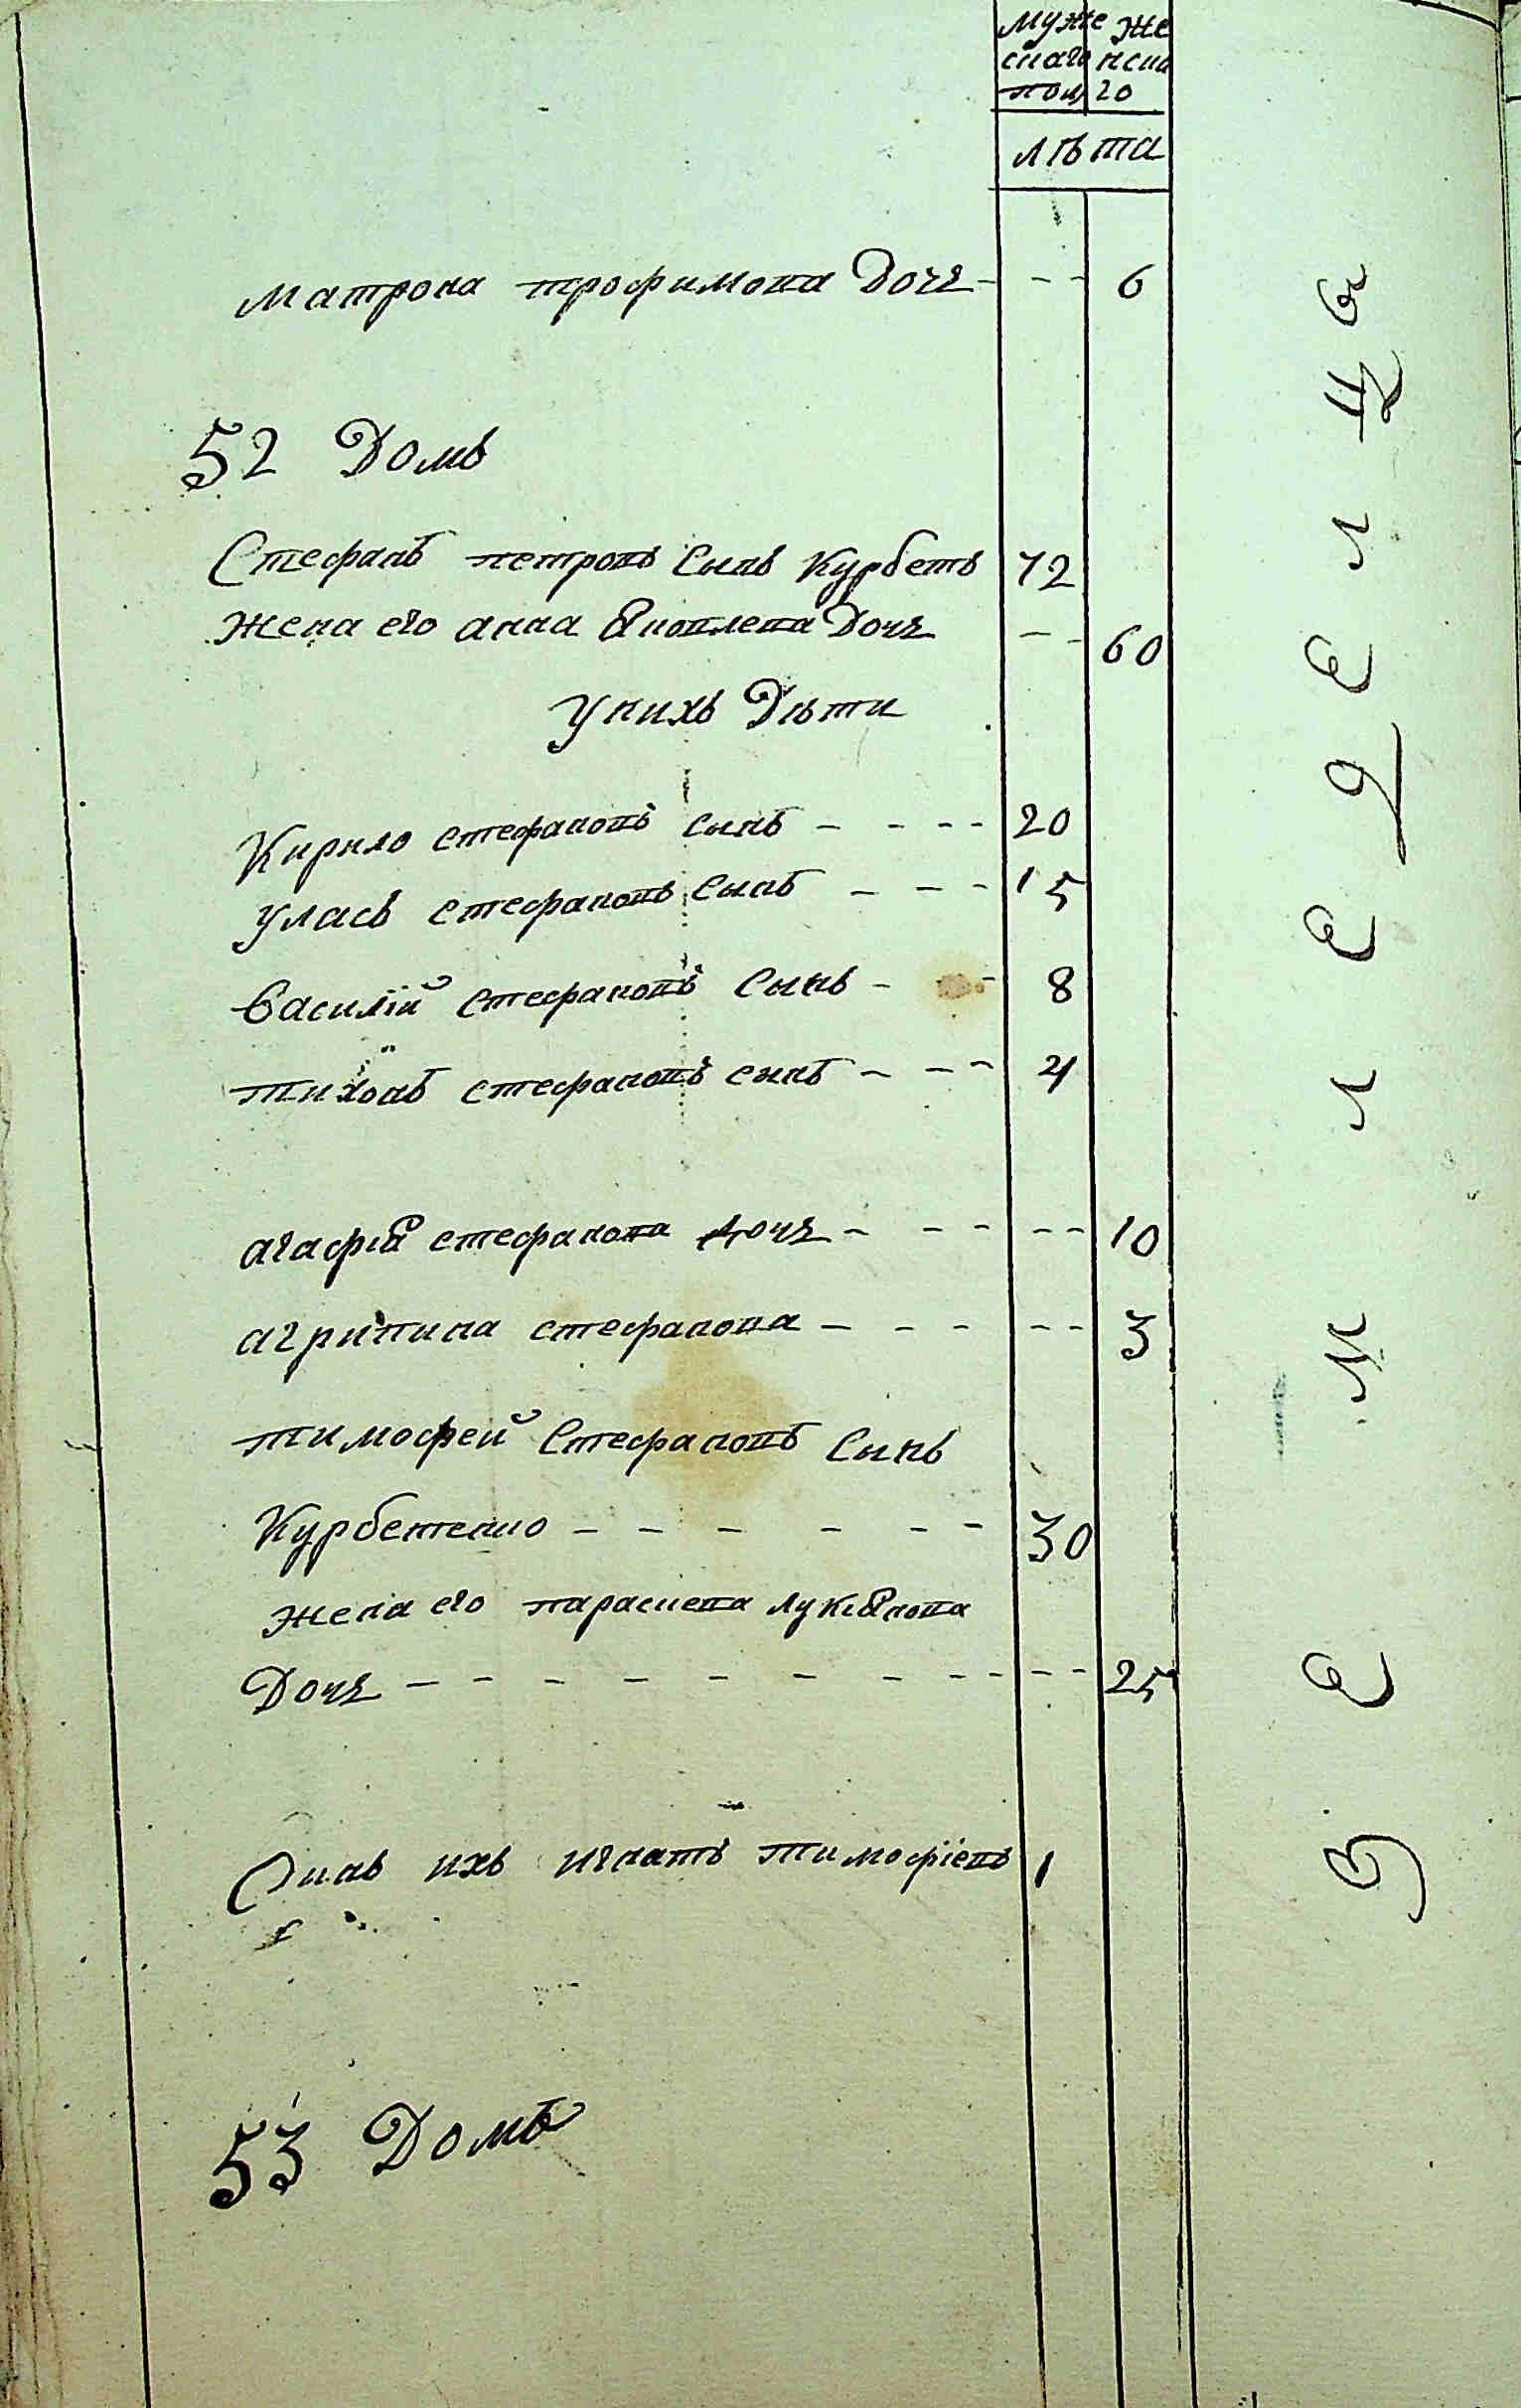 муже же
скаго нска
полу го
лѣта
Матрона трофимова Дочь - - - 6
52 Домъ
Стефанъ петровъ Сынъ Курбетъ 72
Жена его анна Яковлева Дочь - - 60
У нихъ Дѣти
Кирило стефановъ сынъ - - - - 20
Уласъ стефановъ Сынъ - - - 15
Василій стефановъ Сынъ - - 8
тихонъ стефановъ снъ - - - 4
агафія стефанова дочь - - - - - 10
агрипина стефанова - - - - - 3
тимофей Стефановъ Сынъ
Курбетенко - - - - - - 30
жена его параскева лукіянова
Дочь - - - - - - - - - - - 25
Синъ ихъ игнатъ тимофіевъ 1
53 Домъ